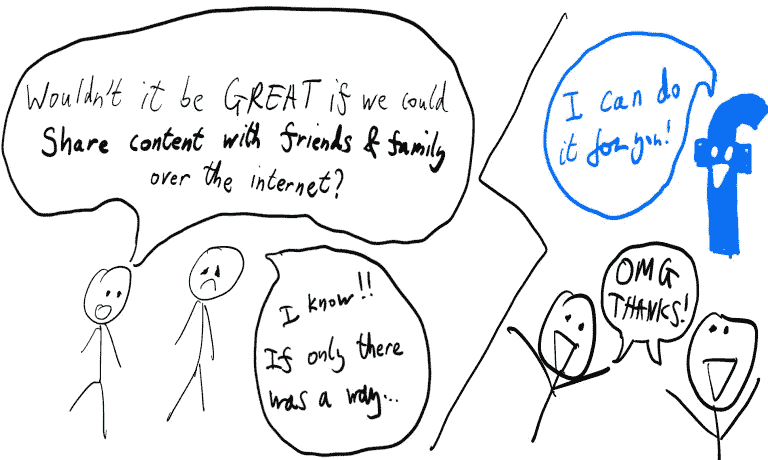 Wouldn't it be GREAT if we could
Share content with friends & family
over the internet?
I know!!
If only there
was a way...
I can do
it for you!
f
OMG
THANKS!